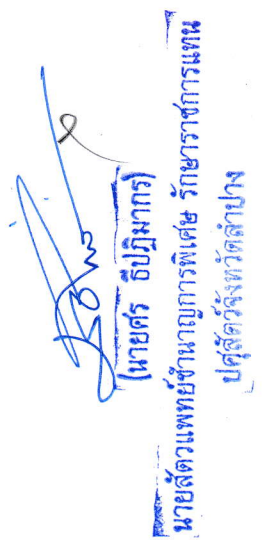 (นายศร ธีปฏิมากร)
นายสัตวแพทย์ชำนาญการพิเศษ รักษาราชการแทน
ปศุสัตว์จังหวัดลำปาง